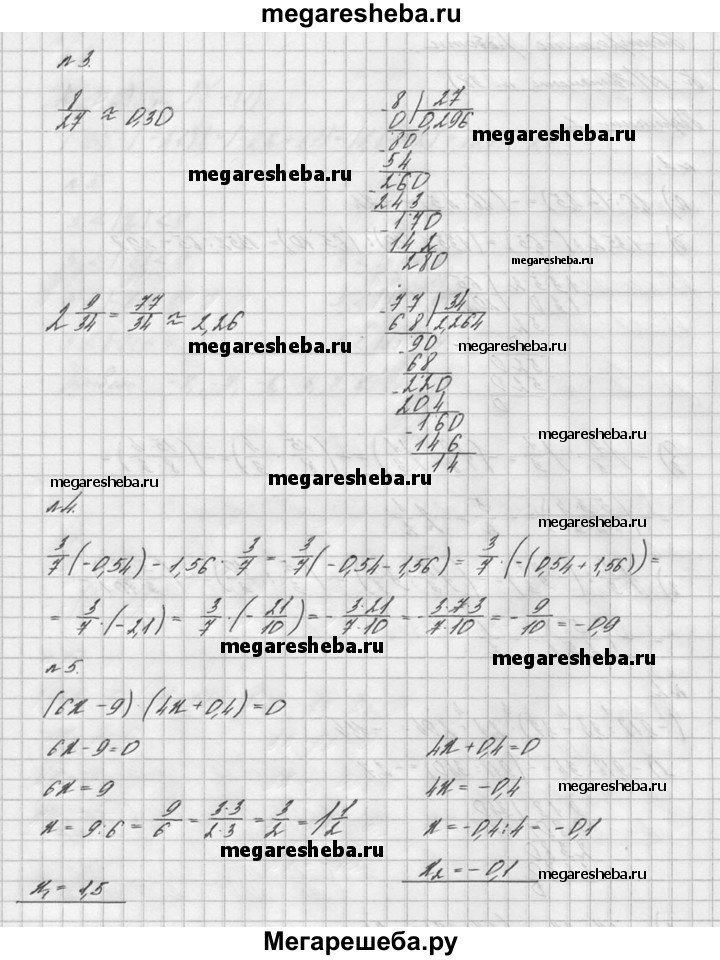 megaresheba.ru
n 3.
8/27 ≈ 0,30
-8 | 27
0 | 0,296
-80
54
-260
243
-170
142
280
megaresheba.ru
megaresheba.ru
megaresheba.ru
2 9/34 = 77/34 ≈ 2,26
-77 | 34
68 | 2,264
-90
68
-220
204
-160
146
14
megaresheba.ru
megaresheba.ru
megaresheba.ru
megaresheba.ru
megaresheba.ru
n 4.
megaresheba.ru
3/7 (-0,54) - 1,56 · 3/7 = 3/7 (-0,54 - 1,56) = 3/7 · (-(0,54 + 1,56)) =
= 3/7 · (-2,1) = 3/7 · (-21/10) = - 3·21/7·10 = - 3·7·3/7·10 = - 9/10 = -0,9
megaresheba.ru
megaresheba.ru
n 5.
(6x - 9) · (4x + 0,4) = 0
6x - 9 = 0
4x + 0,4 = 0
6x = 9
4x = -0,4
megaresheba.ru
x = 9:6 = 9/6 = 3·3/2·3 = 3/2 = 1 1/2
x = -0,4:4 = -0,1
megaresheba.ru
x₂ = -0,1
megaresheba.ru
x₁ = 1,5
Мегарешеба.ру